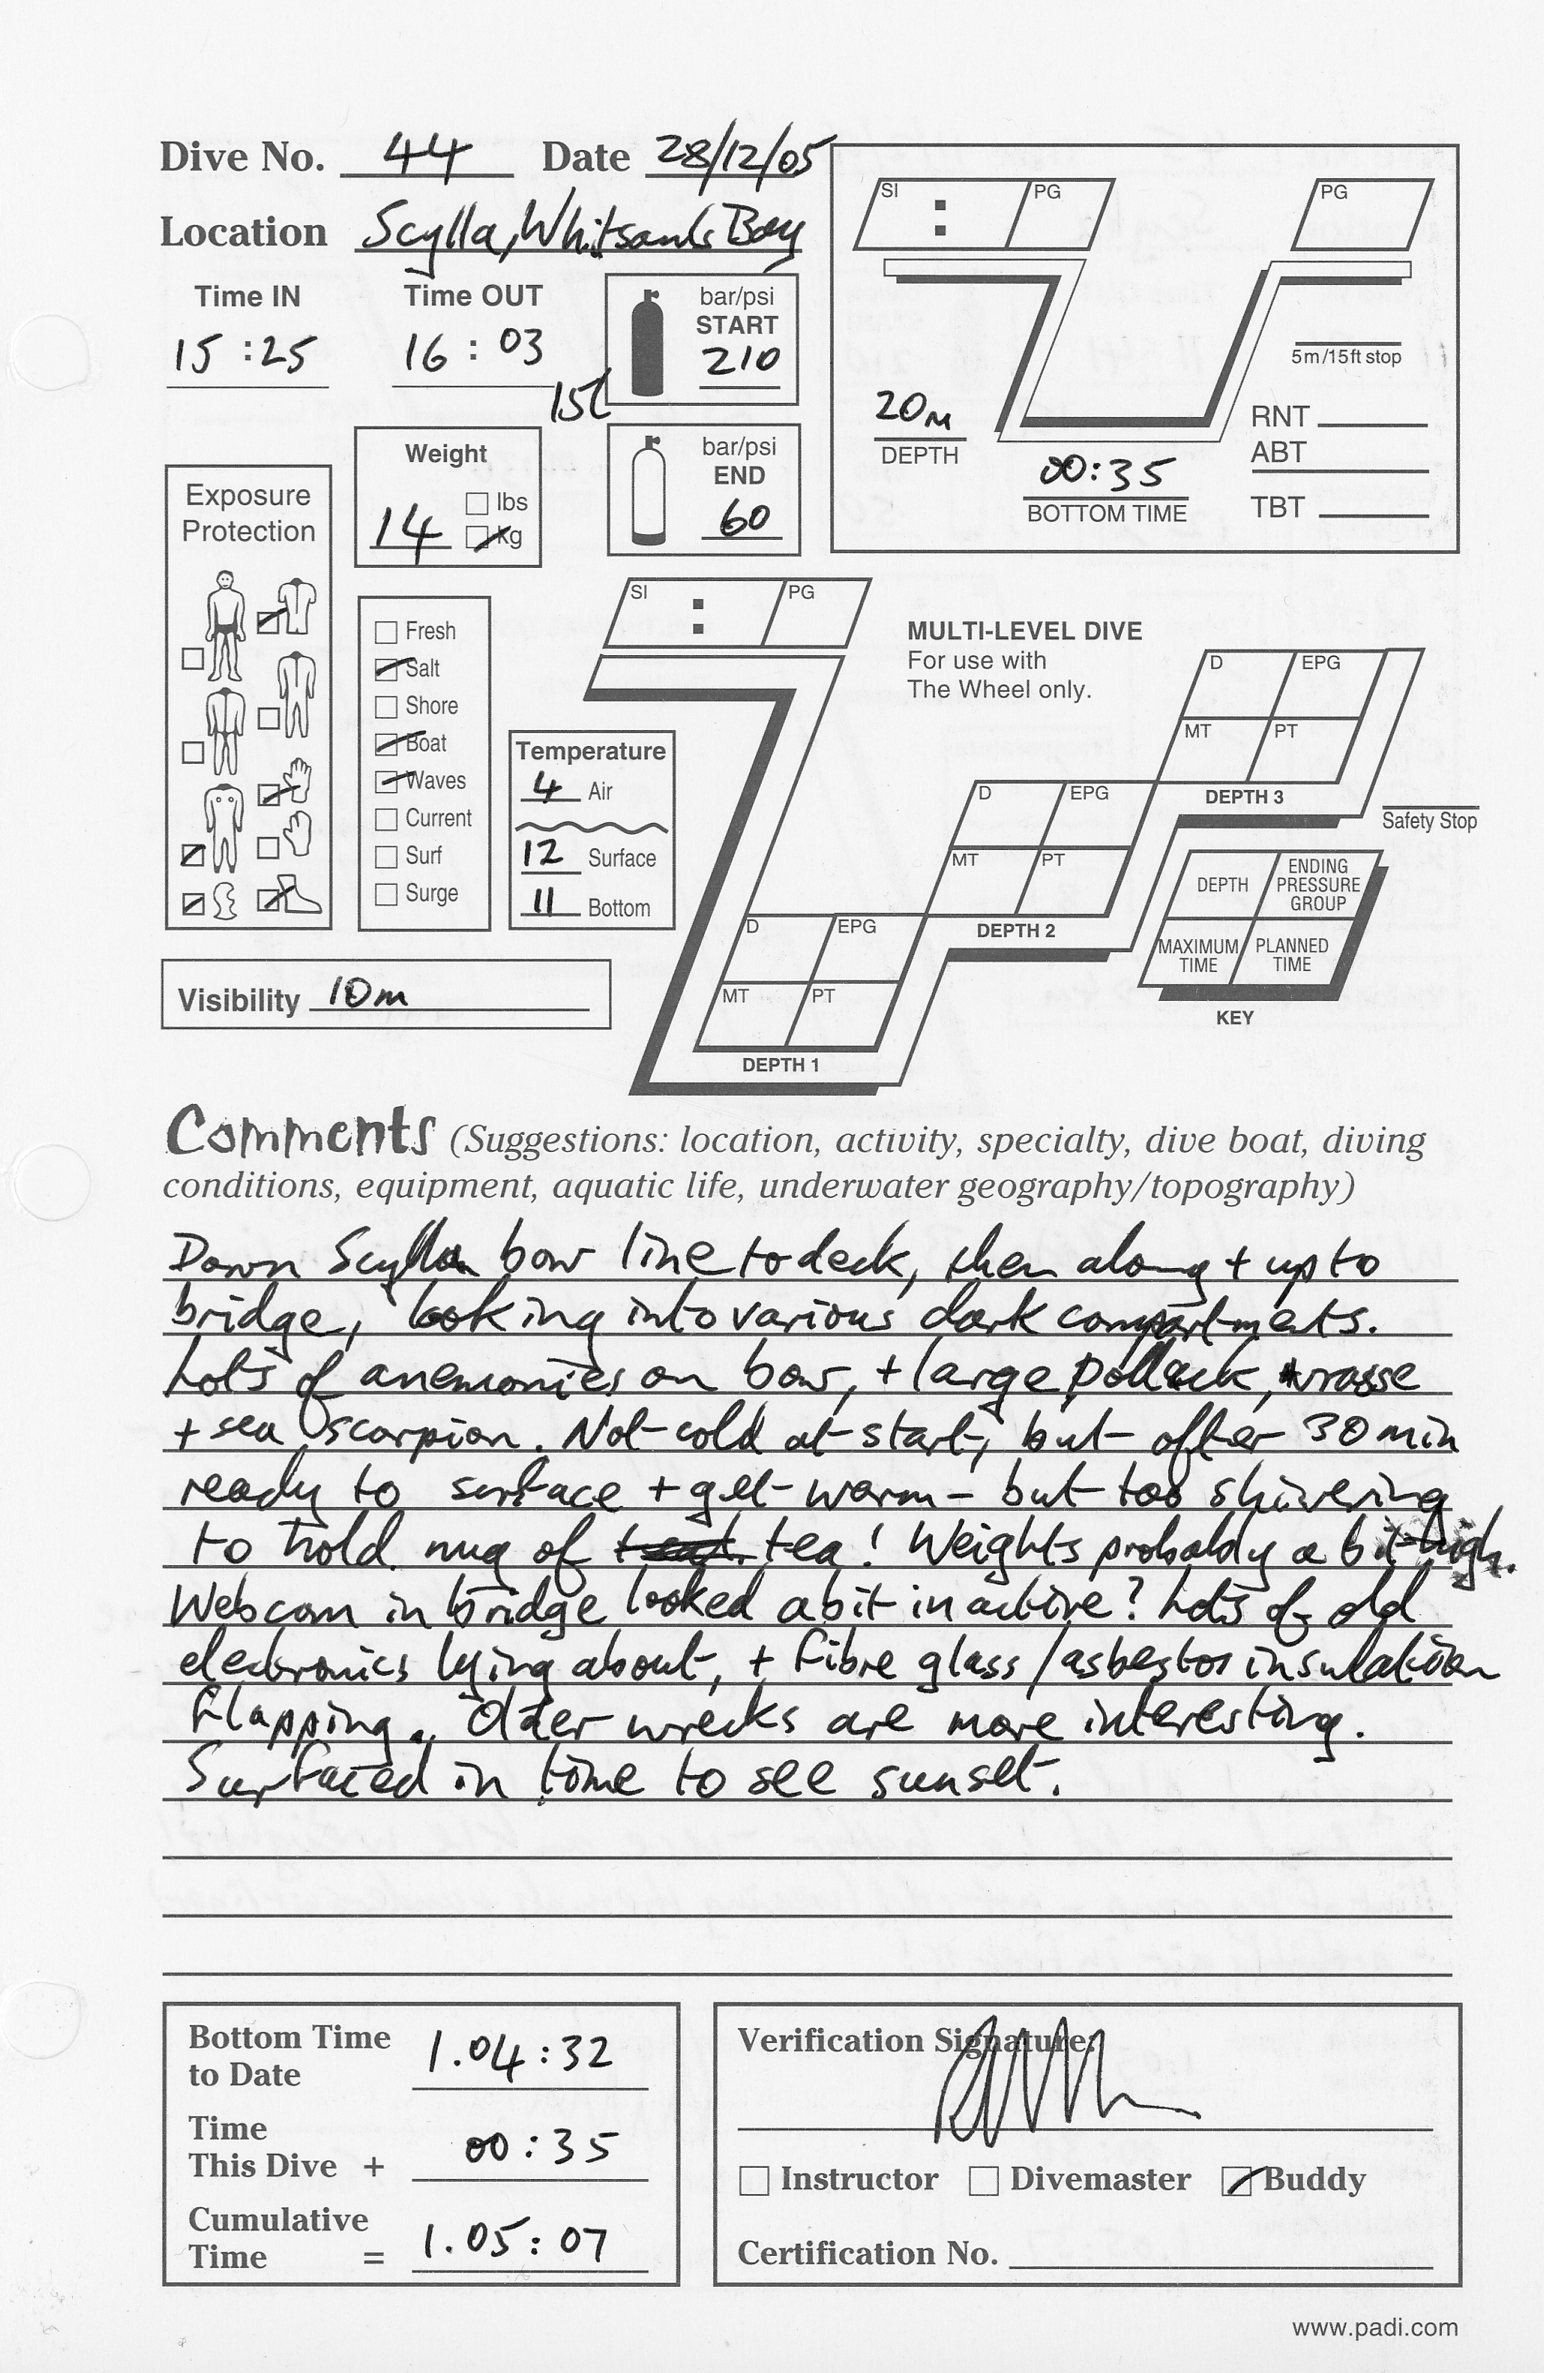 Dive No. 44 Date 28/12/05
Location Scylla, Whitsands Bay
Time IN Time OUT
15:25 16:03
15l
bar/psi
START
210
bar/psi
END
60
Weight
lbs
14 kg
Exposure
Protection
Fresh
Salt
Shore
Boat
Waves
Current
Surf
Surge
Temperature
4 Air
12 Surface
11 Bottom
Visibility 10m
SI : PG PG
5m/15ft stop
20m
DEPTH
00:35
BOTTOM TIME
RNT
ABT
TBT
SI : PG
MULTI-LEVEL DIVE
For use with
The Wheel only.
D EPG
MT PT
DEPTH 3
D EPG
MT PT
DEPTH 2
D EPG
MT PT
DEPTH 1
Safety Stop
DEPTH ENDING PRESSURE GROUP
MAXIMUM TIME PLANNED TIME
KEY
Comments (Suggestions: location, activity, specialty, dive boat, diving
conditions, equipment, aquatic life, underwater geography/topography)
Down Scylla bow line to deck, then along + up to
bridge, looking into various dark compartments.
Lots of anemonies on bow, + large pollack, wrasse
+ sea scorpion. Not cold at start, but after 30 min
ready to surface + get warm - but too shivering
to hold mug of tea! Weights probably a bit high.
Webcam in bridge looked a bit inactive? Lots of old
electronics lying about, + fibre glass/asbestos insulation
flapping. Older wrecks are more interesting.
Surfaced in time to see sunset.
Bottom Time
to Date 1.04:32
Time
This Dive + 00:35
Cumulative
Time = 1.05:07
Verification Signature:
Instructor Divemaster Buddy
Certification No.
www.padi.com